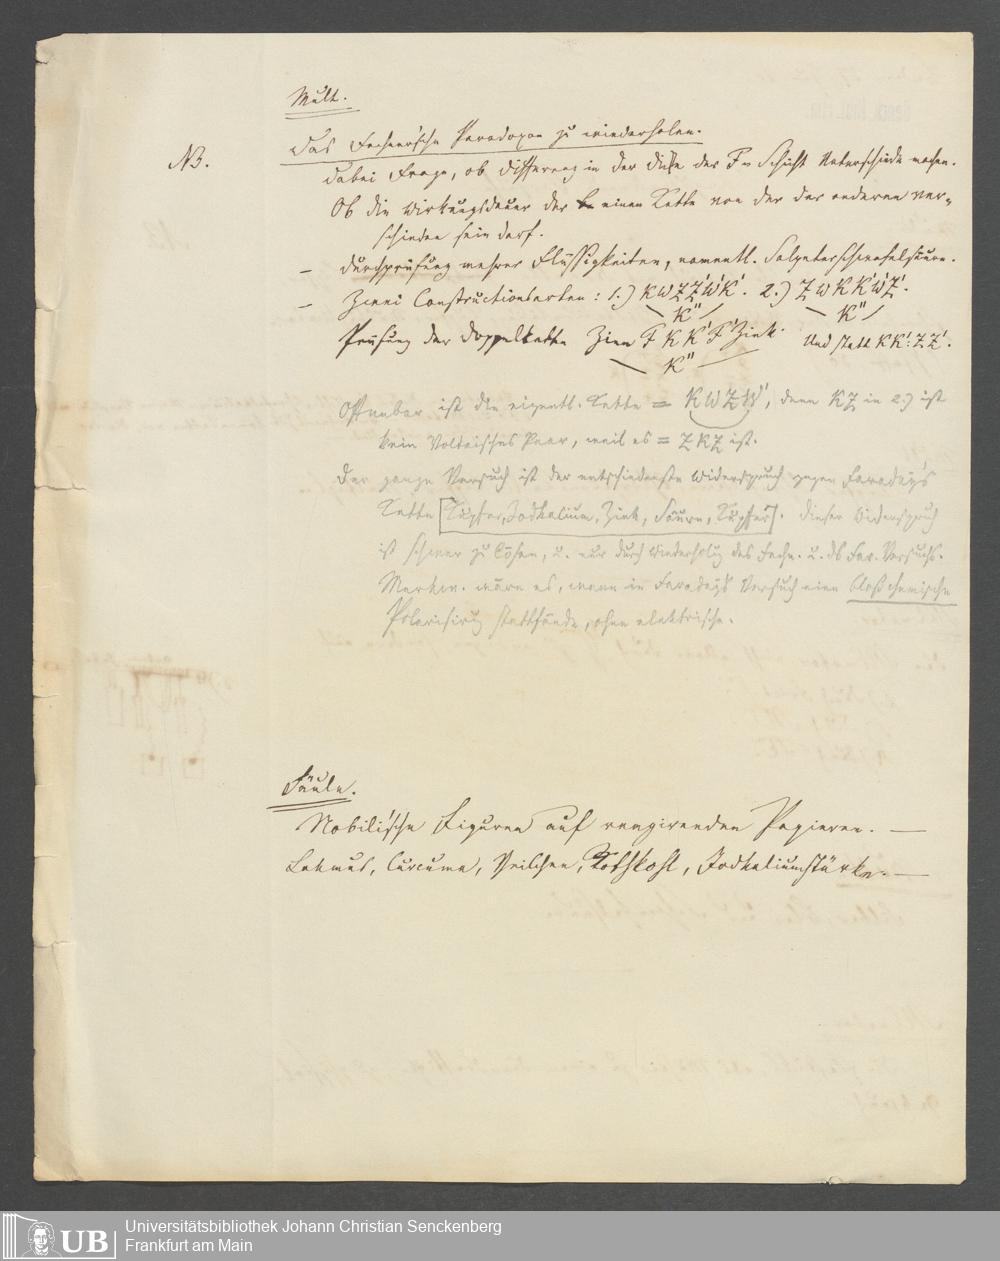 Mult.
Das Fechner'sche Paradoxon zu wiederholen.
NB.
Dabei Frage, ob Differenz in der Dicke der F = Schicht Unterschiede machen.
Ob die Wirkungsdauer der einen Kette von der der anderen ver=
schieden sein darf.
– Durchprüfung mehrer Flüssigkeiten, namentl. Salpeterschwefelsäure.
– Zwei Constructionsarten: 1.) K W Z Z' W' K'. 2.) Z W K K' W' Z'.
K" K"
Prüfung der Doppelkette Zinn F K K' F' Zink. Und statt KK': ZZ'.
K"
Offenbar ist die eigentl. Kette = K W Z W', denn KZ in 2.) ist
kein Voltaisches Paar, weil es = ZKZ ist.
Der ganze Versuch ist der entschiedenste Widerspruch gegen Faraday's
Kette [Kupfer, Jodkalium, Zink, Säure, Kupfer]. Dieser Widerspruch
ist schwer zu lösen, u. nur durch Wiederholg des Fechn. u. ds Far. Versuchs.
Merkw. wäre es, wenn in Faraday's Versuch eine bloß chemische
Polarisirung stattfände, ohne elektrische.
Säule.
Nobili'sche Figuren auf reagirenden Papieren. —
Lakmus, Curcuma, Veilchen, Rothkohl, Jodkaliumstärke. —
UB
Universitätsbibliothek Johann Christian Senckenberg
Frankfurt am Main